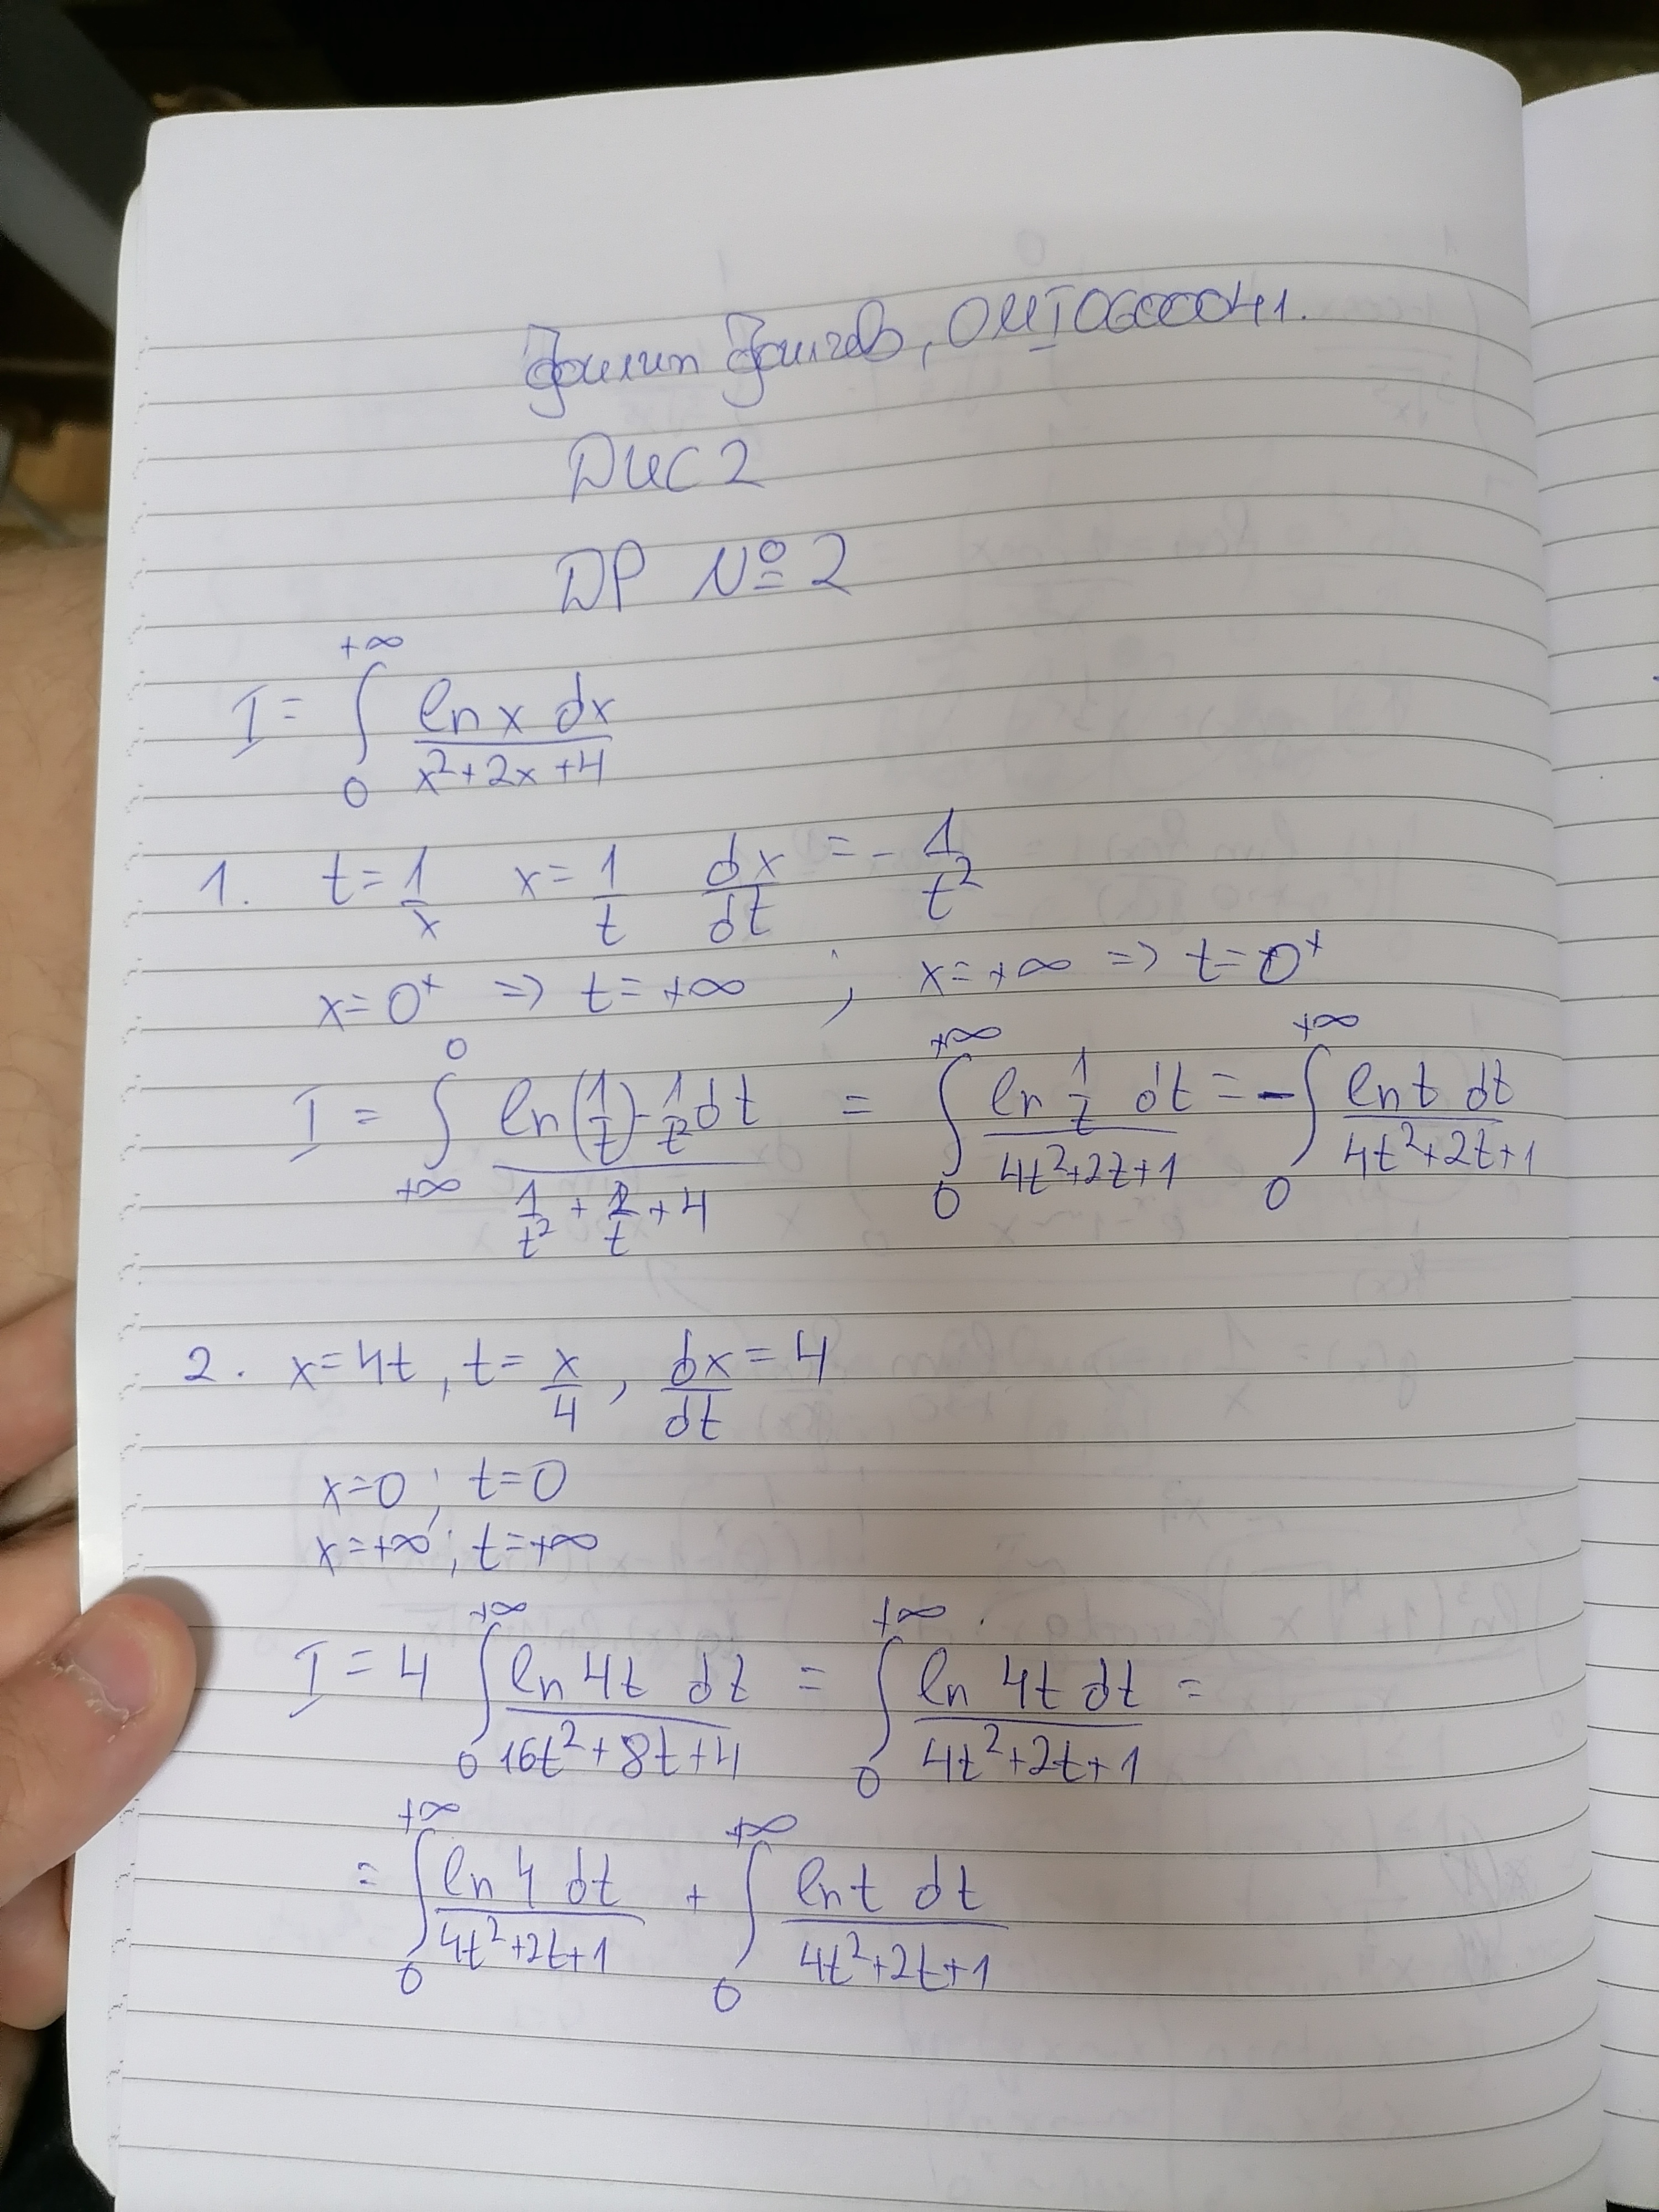 Филип Филчев, 0MI0600041.
ДИС 2
DP №2
I = ∫₀^{+∞} ln x dx / (x²+2x+4)
1. t = 1/x x = 1/t dx/dt = -1/t²
x=0⁺ => t=+∞ ; x=+∞ => t=0⁺
I = ∫_{+∞}^0 ln(1/t) - 1/t² dt / (1/t² + 2/t + 4) = ∫₀^{+∞} ln 1/t dt / (4t²+2t+1) = -∫₀^{+∞} ln t dt / (4t²+2t+1)
2. x=4t, t=x/4, dx/dt=4
x=0; t=0
x=+∞; t=+∞
I = 4 ∫₀^{+∞} ln 4t dt / (16t²+8t+4) = ∫₀^{+∞} ln 4t dt / (4t²+2t+1) =
= ∫₀^{+∞} ln 4 dt / (4t²+2t+1) + ∫₀^{+∞} ln t dt / (4t²+2t+1)